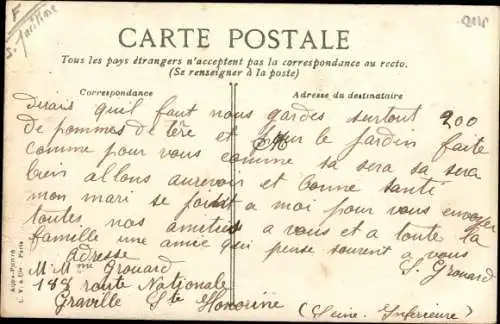 F
S.
CARTE POSTALE
Tous les pays étrangers n'acceptent pas la correspondance au recto.
(Se renseigner à la poste)
Correspondance
Adresse du destinataire
dirais quil faut nous gardes surtout 200
de pommes de têre et pour le jardin faite
comme pour vous comme sa sera sa sera
bien allons aurevoir et bonne santé
mon mari se joint a moi pour vous envoyer
toutes nos amitiés a vous et a toute la
famille une amie qui pense souvent a vous
S. Grouard
adresse
M. Mme Grouard
188 route Nationale
Graville Ste Honorine
(Seine Inférieure)